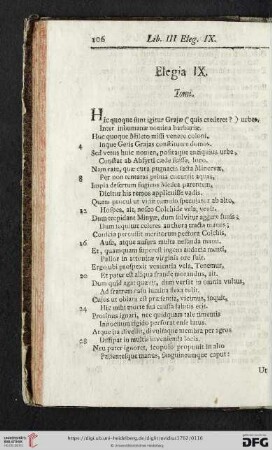 106 Lib. III Eleg. IX.
Elegia IX.
Tomi.
Hic quoque sunt igitur Grajæ (quis crederet?) urbes,
Inter inhumanæ nomina barbariæ.
Huc quoque Mileto missi venere coloni,
4 Inque Getis Grajas constituere domos.
Sed vetus huic nomen, positaque antiquius urbe,
Constat ab Absyrti cæde fuisse, loco.
Nam rate, quæ cura pugnacis facta Minervæ,
8 Per non tentatas prima cucurrit aquas,
Impia desertum fugiens Medea parentem,
Dicitur his remos applicuisse vadis.
Quem procul ut vidit tumulo speculator ab alto,
12 Hospes, ait, nosco Colchide vela, venit.
Dum trepidant Minyæ, dum solvitur aggere funis;
Dum sequitur celeres anchora tracta manus;
Conscia percussit meritorum pectora Colchis,
16 Ausa, atque ausura multa nefanda manu.
Et, quamquam superest ingens audacia menti,
Pallor in attonitæ virginis ore fuit.
Ergo ubi prospexit venientia vela, Tenemur,
20 Et pater est aliqua fraude morandus, ait.
Dum quid agat quærit, dum versat in omnia vultus,
Ad fratrem casu lumina flexa tulit.
Cujus ut oblata est præsentia, vicimus, inquit,
24 Hic mihi morte sua causa salutis erit.
Protinus ignari, nec quidquam tale timentis
Innocuum rigido perforat ense latus.
Atque ita divellit, divulsaque membra per agros
28 Dissipat in multis invenienda locis.
Neu pater ignoret, scopulo proponit in alto
Pallentesque manus, sanguineumque caput:
Ut
https://digi.ub.uni-heidelberg.de/diglit/ovidius1702/0116
© Universitätsbibliothek Heidelberg
UNIVERSITÄTS-BIBLIOTHEK HEIDELBERG
gefördert durch die
DFG